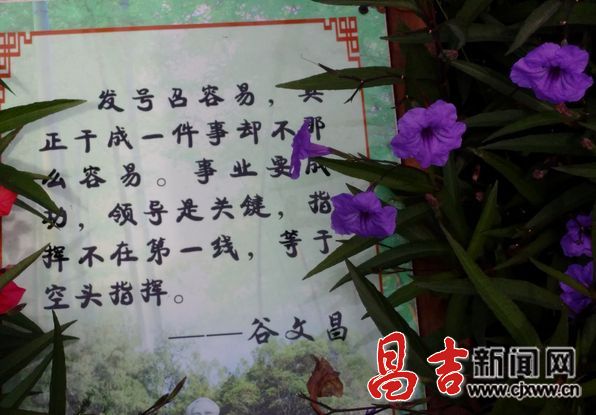 发号召容易，真
正干成一件事却不那
么容易。事业要成
功，领导是关键，指
挥不在第一线，等于
空头指挥。
——谷文昌
昌吉新闻网
www.cjxww.cn